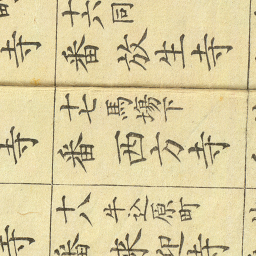 十六同
番 放生寺
十七 馬場下
番 西方寺
十八 牛込原町
番 来迎寺
寺
寺
寺